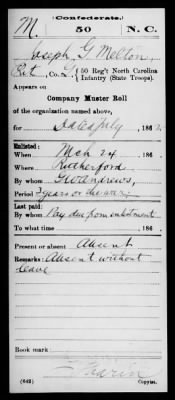 Confederate.
M. 50 N. C.
Joseph G. Melton,
Pvt, Co. G, 50 Reg't North Carolina
Infantry (State Troops).
Appears on
Company Muster Roll
of the organization named above,
for July, 186
Enlisted:
When Mch 24, 186
Where Rutherford
By whom G W Andrews,
Period 3 years or the war.
Last paid:
By whom Pay due from enlistment
To what time , 186
Present or absent Absent
Remarks: Absent without
leave
Book mark:
(642) Copyist.